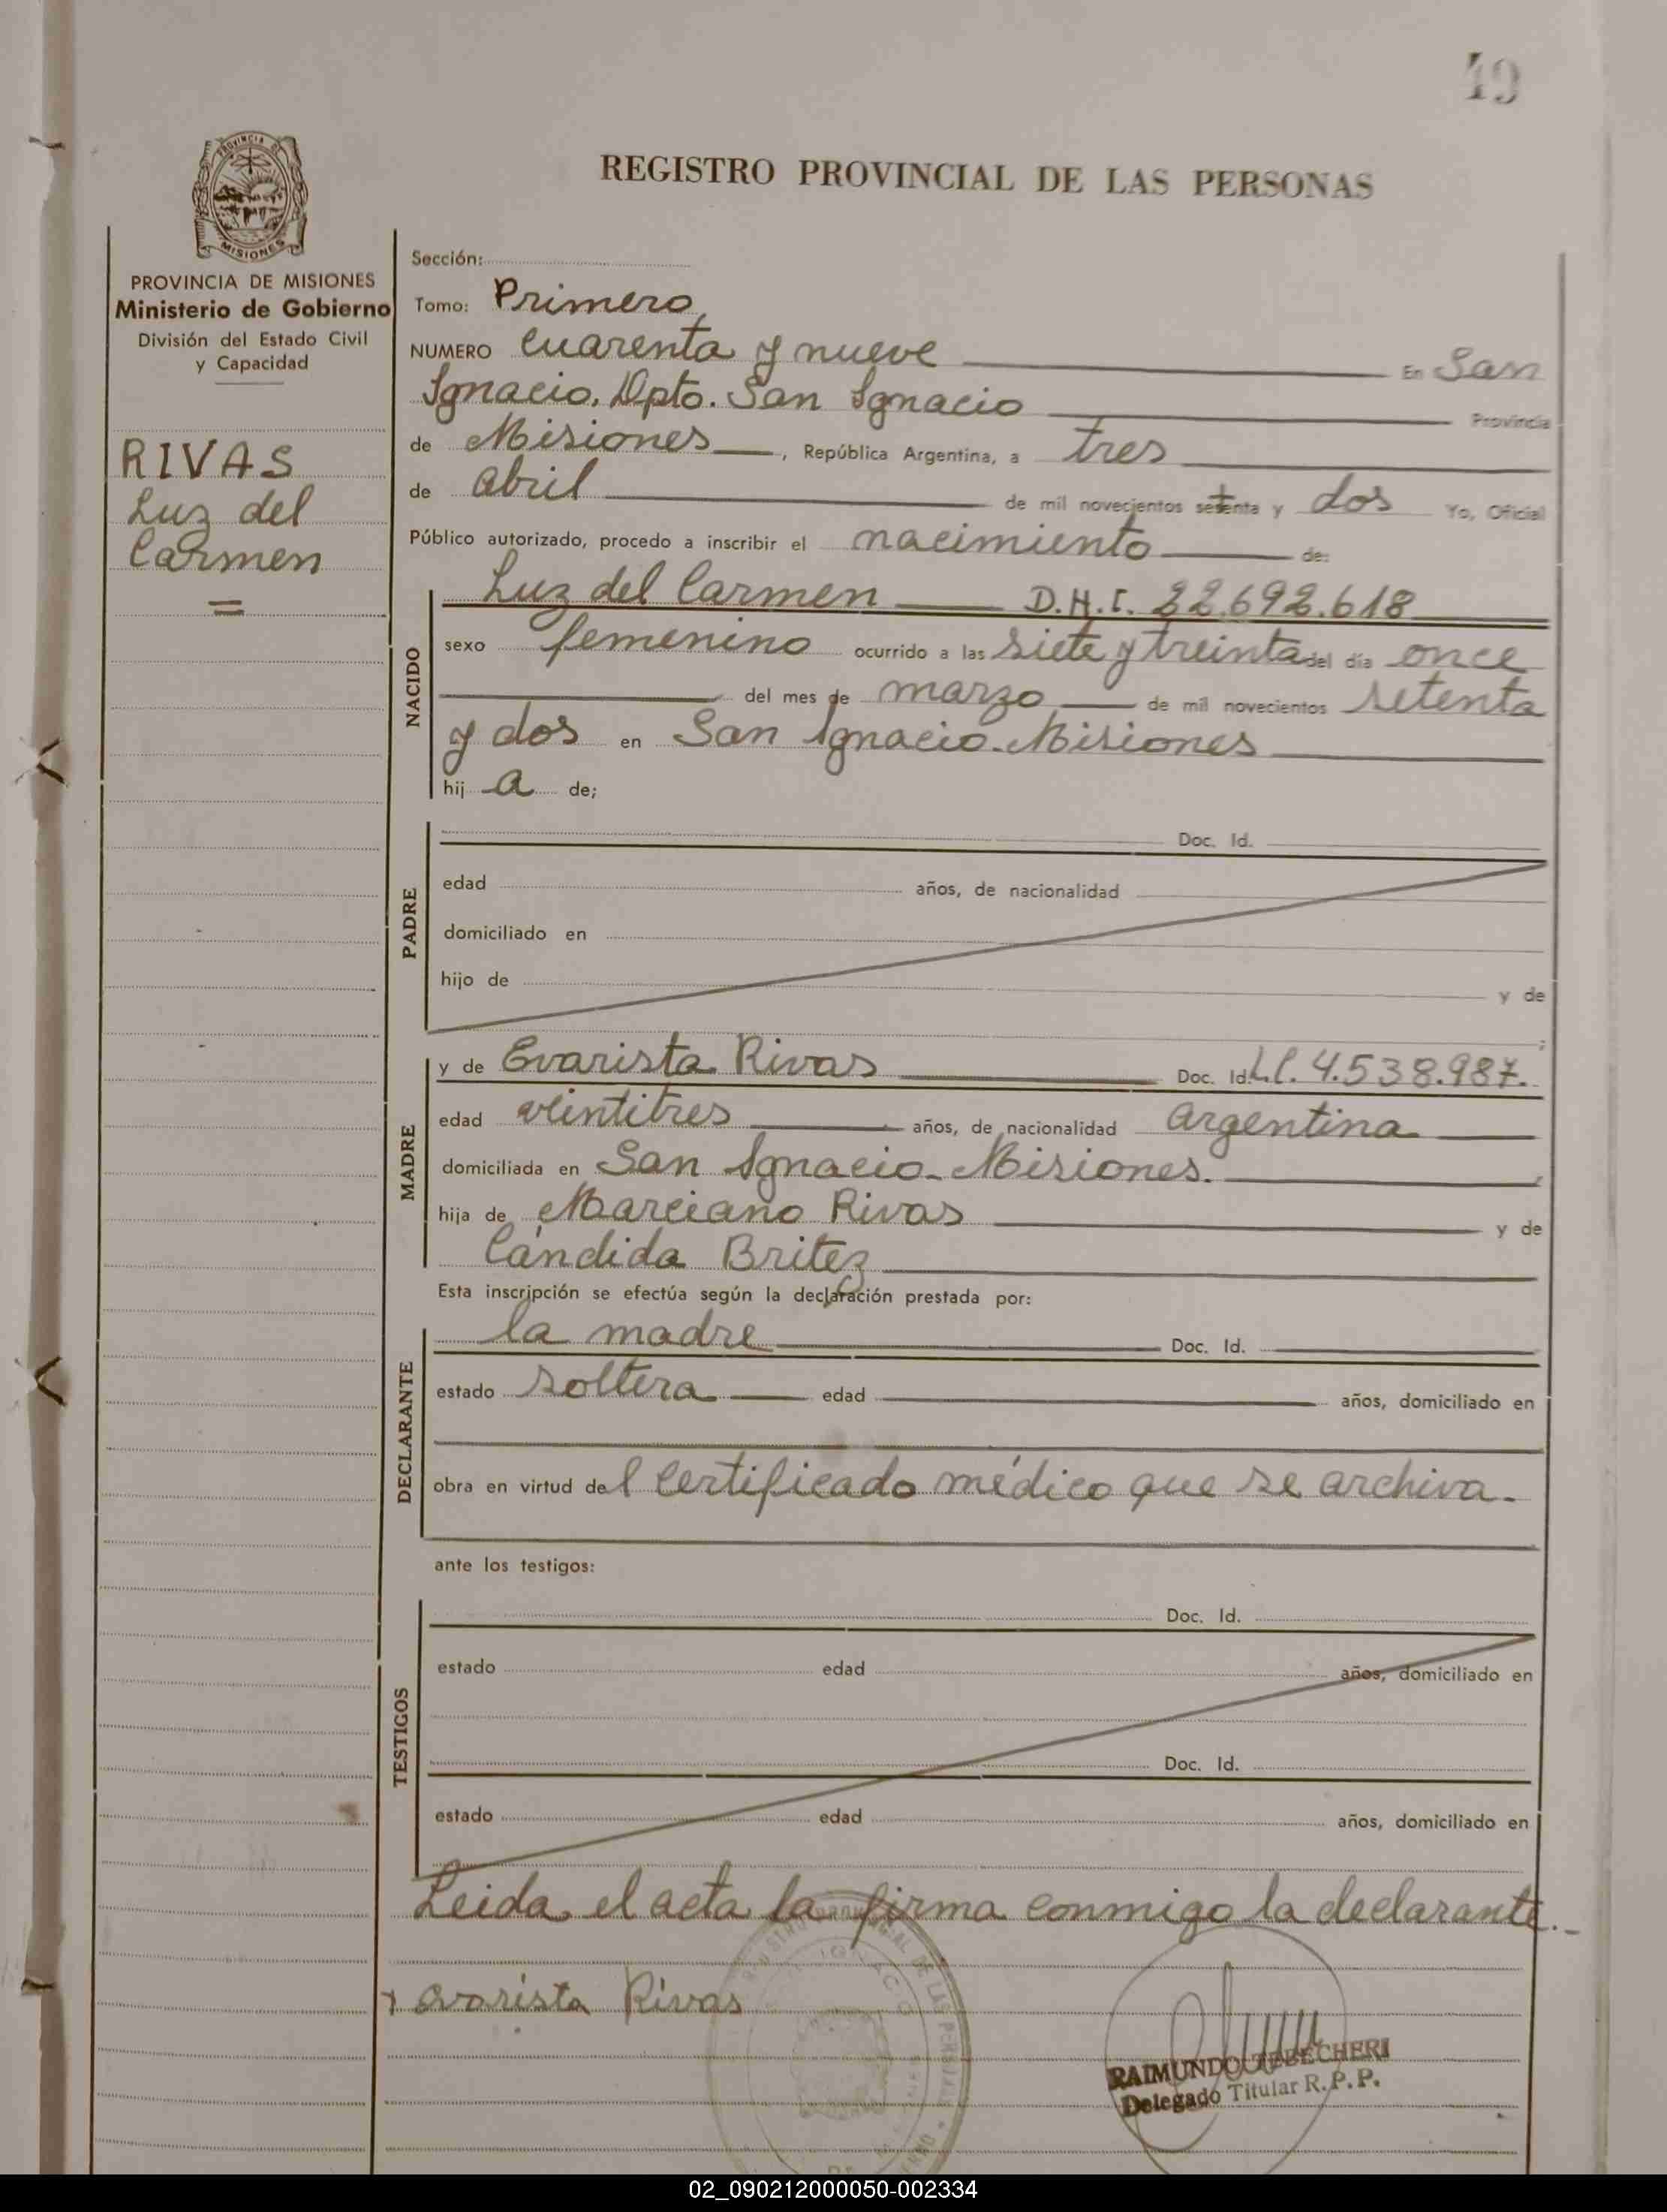 49
REGISTRO PROVINCIAL DE LAS PERSONAS
PROVINCIA DE
MISIONES
PROVINCIA DE MISIONES
Ministerio de Gobierno
División del Estado Civil
y Capacidad
RIVAS
Luz del
Carmen
Sección:
Tomo: Primero
NUMERO cuarenta y nueve En San
Ignacio, Dpto. San Ignacio Provincia
de Misiones, República Argentina, a tres
de abril de mil novecientos setenta y dos Yo, Oficial
Público autorizado, procedo a inscribir el nacimiento de:
NACIDO
Luz del Carmen D.N.I. 22.692.618
sexo femenino ocurrido a las siete y treinta del día once
del mes de marzo de mil novecientos setenta
y dos en San Ignacio - Misiones
hij a de;
PADRE
Doc. Id.
edad años, de nacionalidad
domiciliado en
hijo de y de
MADRE
y de Evarista Rivas Doc. Id. L.C. 4.538.987.
edad veintitres años, de nacionalidad argentina
domiciliada en San Ignacio - Misiones.
hija de Marciano Rivas y de
Cándida Britez
Esta inscripción se efectúa según la declaración prestada por:
DECLARANTE
la madre Doc. Id.
estado soltera edad años, domiciliado en
obra en virtud del certificado médico que se archiva.
ante los testigos:
TESTIGOS
Doc. Id.
estado edad años, domiciliado en
Doc. Id.
estado edad años, domiciliado en
Leida el acta la firma conmigo la declarante.
evarista Rivas
RAIMUNDO
Delegado Titular R.P.P.
02_090212000050-002334